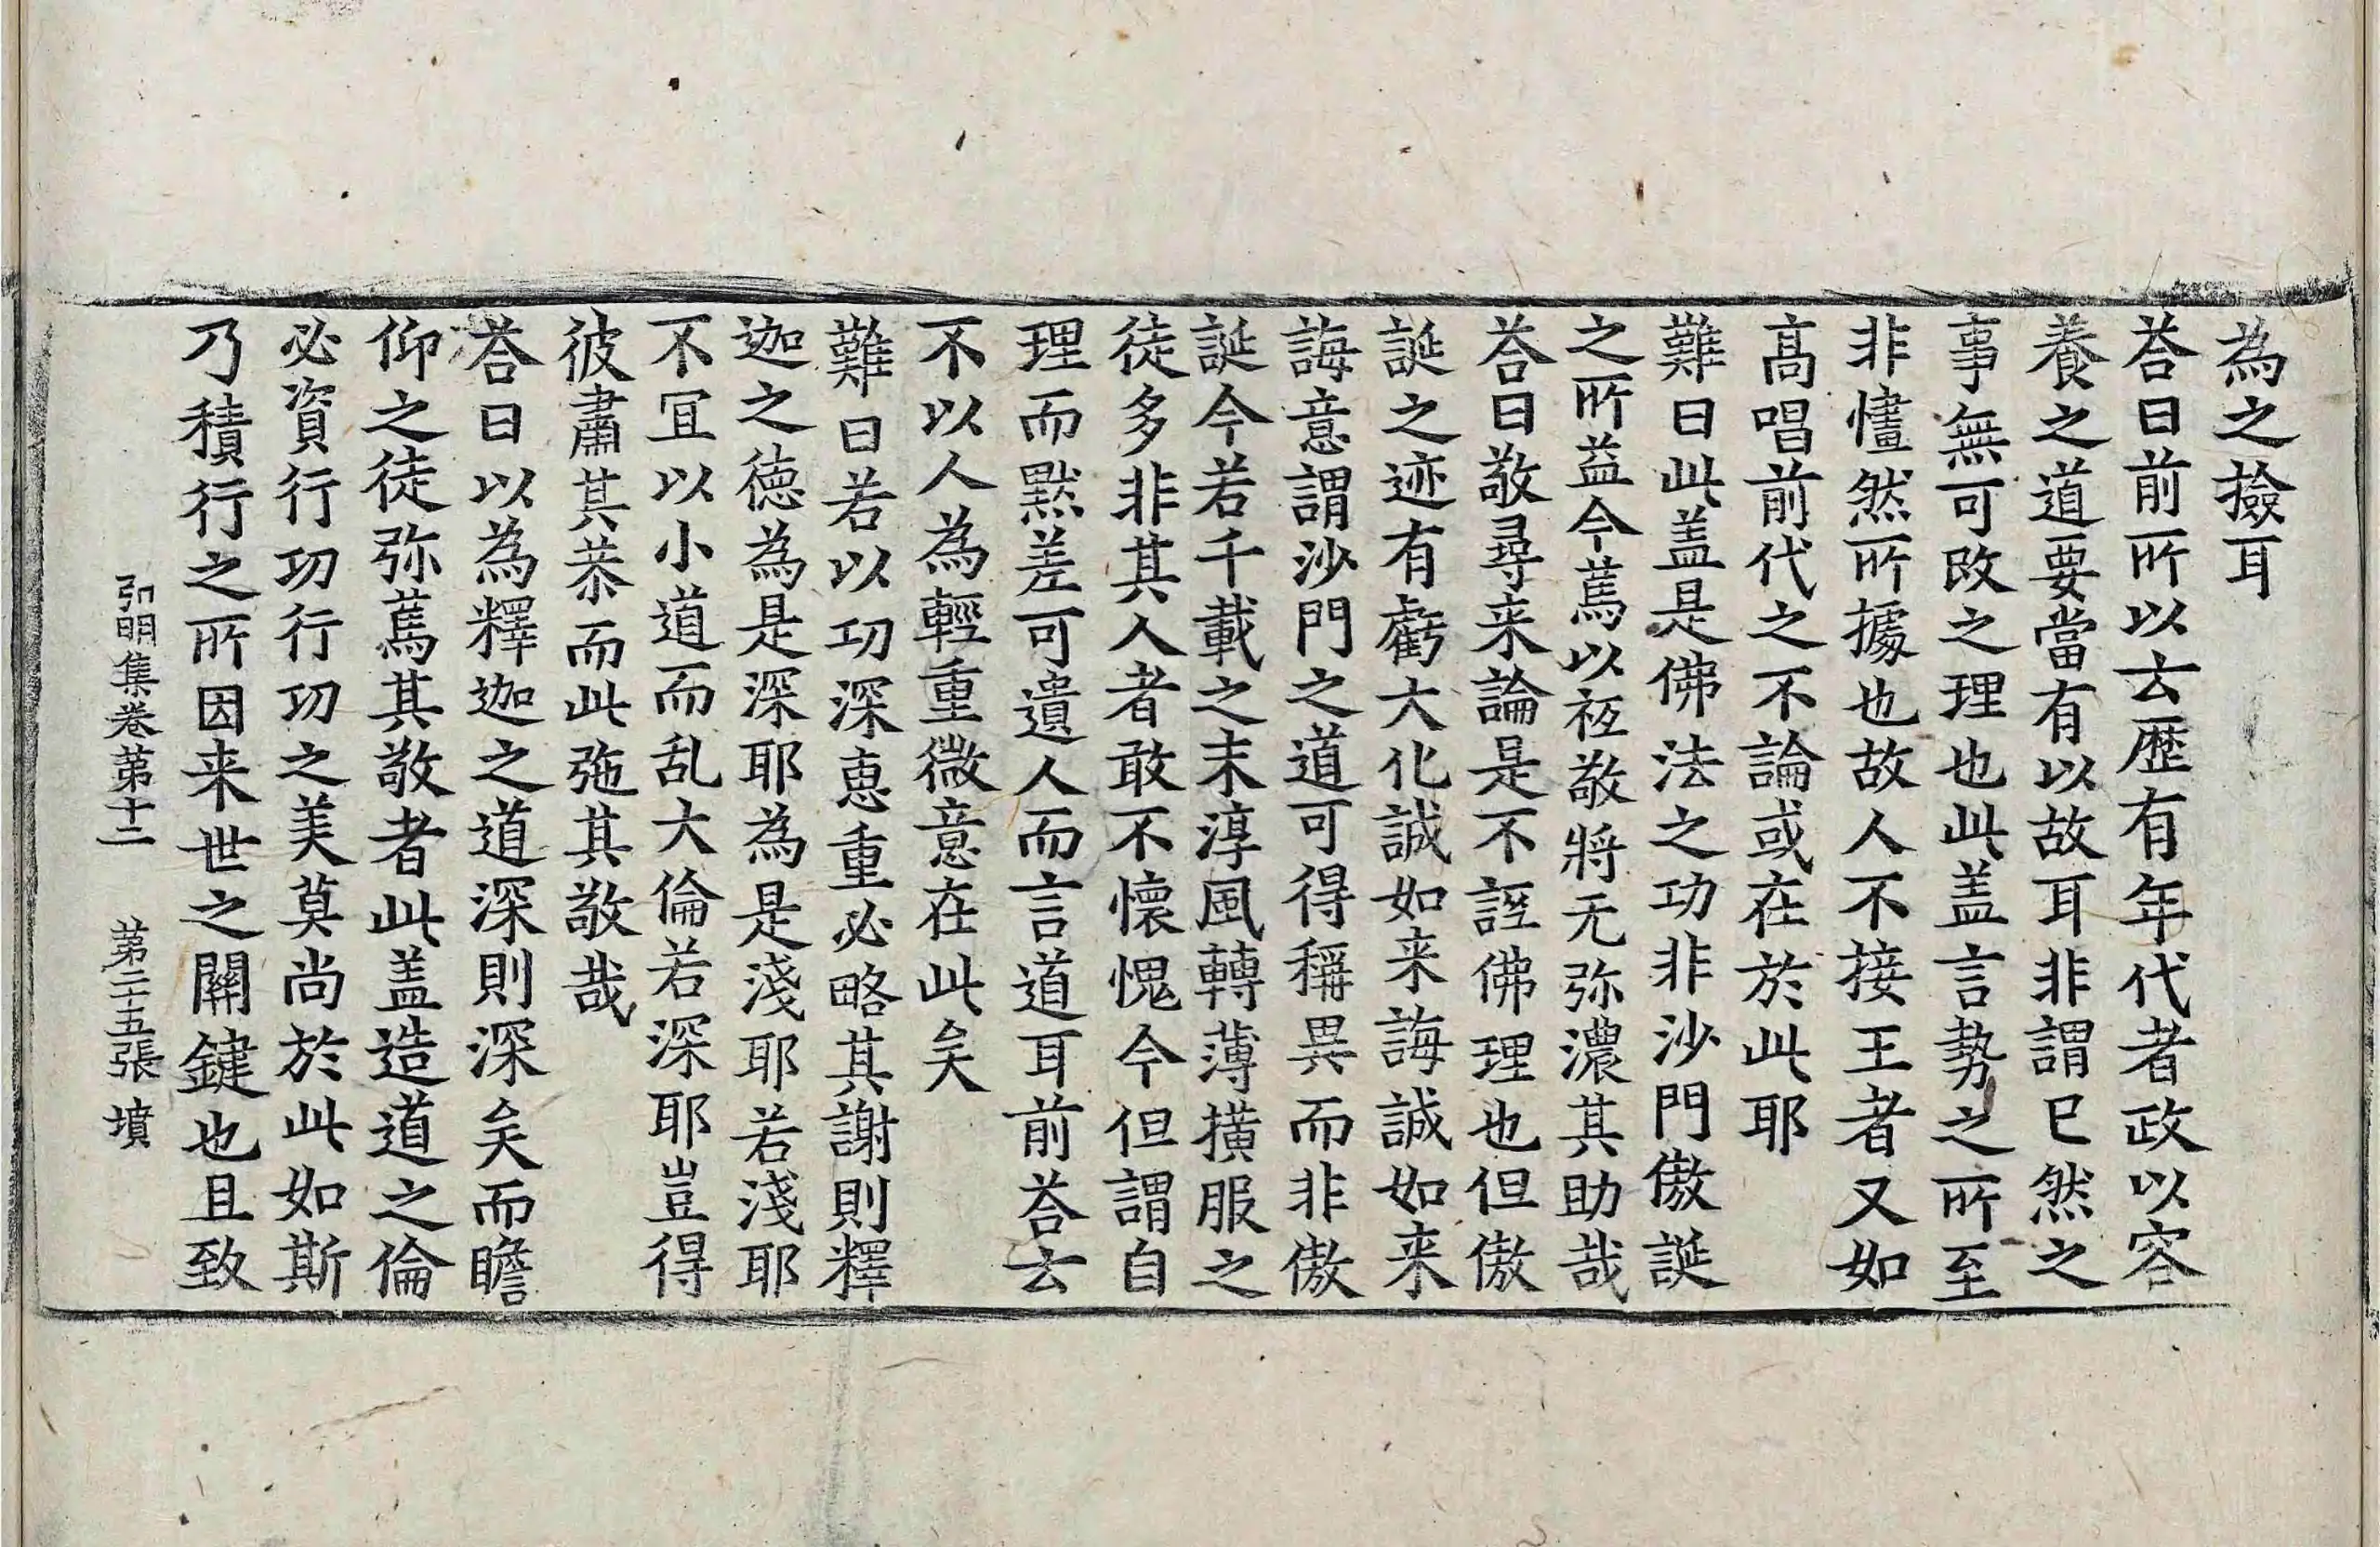 為之撿耳
荅曰前所以去歷有年代者政以容
養之道要當有以故耳非謂已然之
事無可改之理也此盖言勢之所至
非㦎然所據也故人不接王者又如
髙唱前代之不論或在於此耶
難曰此盖是佛法之功非沙門傲誕
之所益今蔫以祗敬將无弥濃其助哉
荅曰敬尋来論是不誣佛理也但傲
誕之迹有虧大化誠如来誨誠如来
誨意謂沙門之道可得稱異而非傲
誕今若千載之末淳風轉薄撗服之
徒多非其人者敢不懷愧今但謂自
理而黙差可遺人而言道耳前荅云
不以人為輕重微意在此矣
難曰若以功深惠重必略其謝則釋
迦之徳為是深耶為是淺耶若淺耶
不冝以小道而乱大倫若深耶豈得
彼肅其恭而此弛其敬哉
荅曰以為釋迦之道深則深矣而瞻
仰之徒弥蔫其敬者此盖造道之倫
必資行功行功之美莫尚於此如斯
乃積行之所因来世之關鍵也且致
弘明集卷第十二　第二十五張　墳